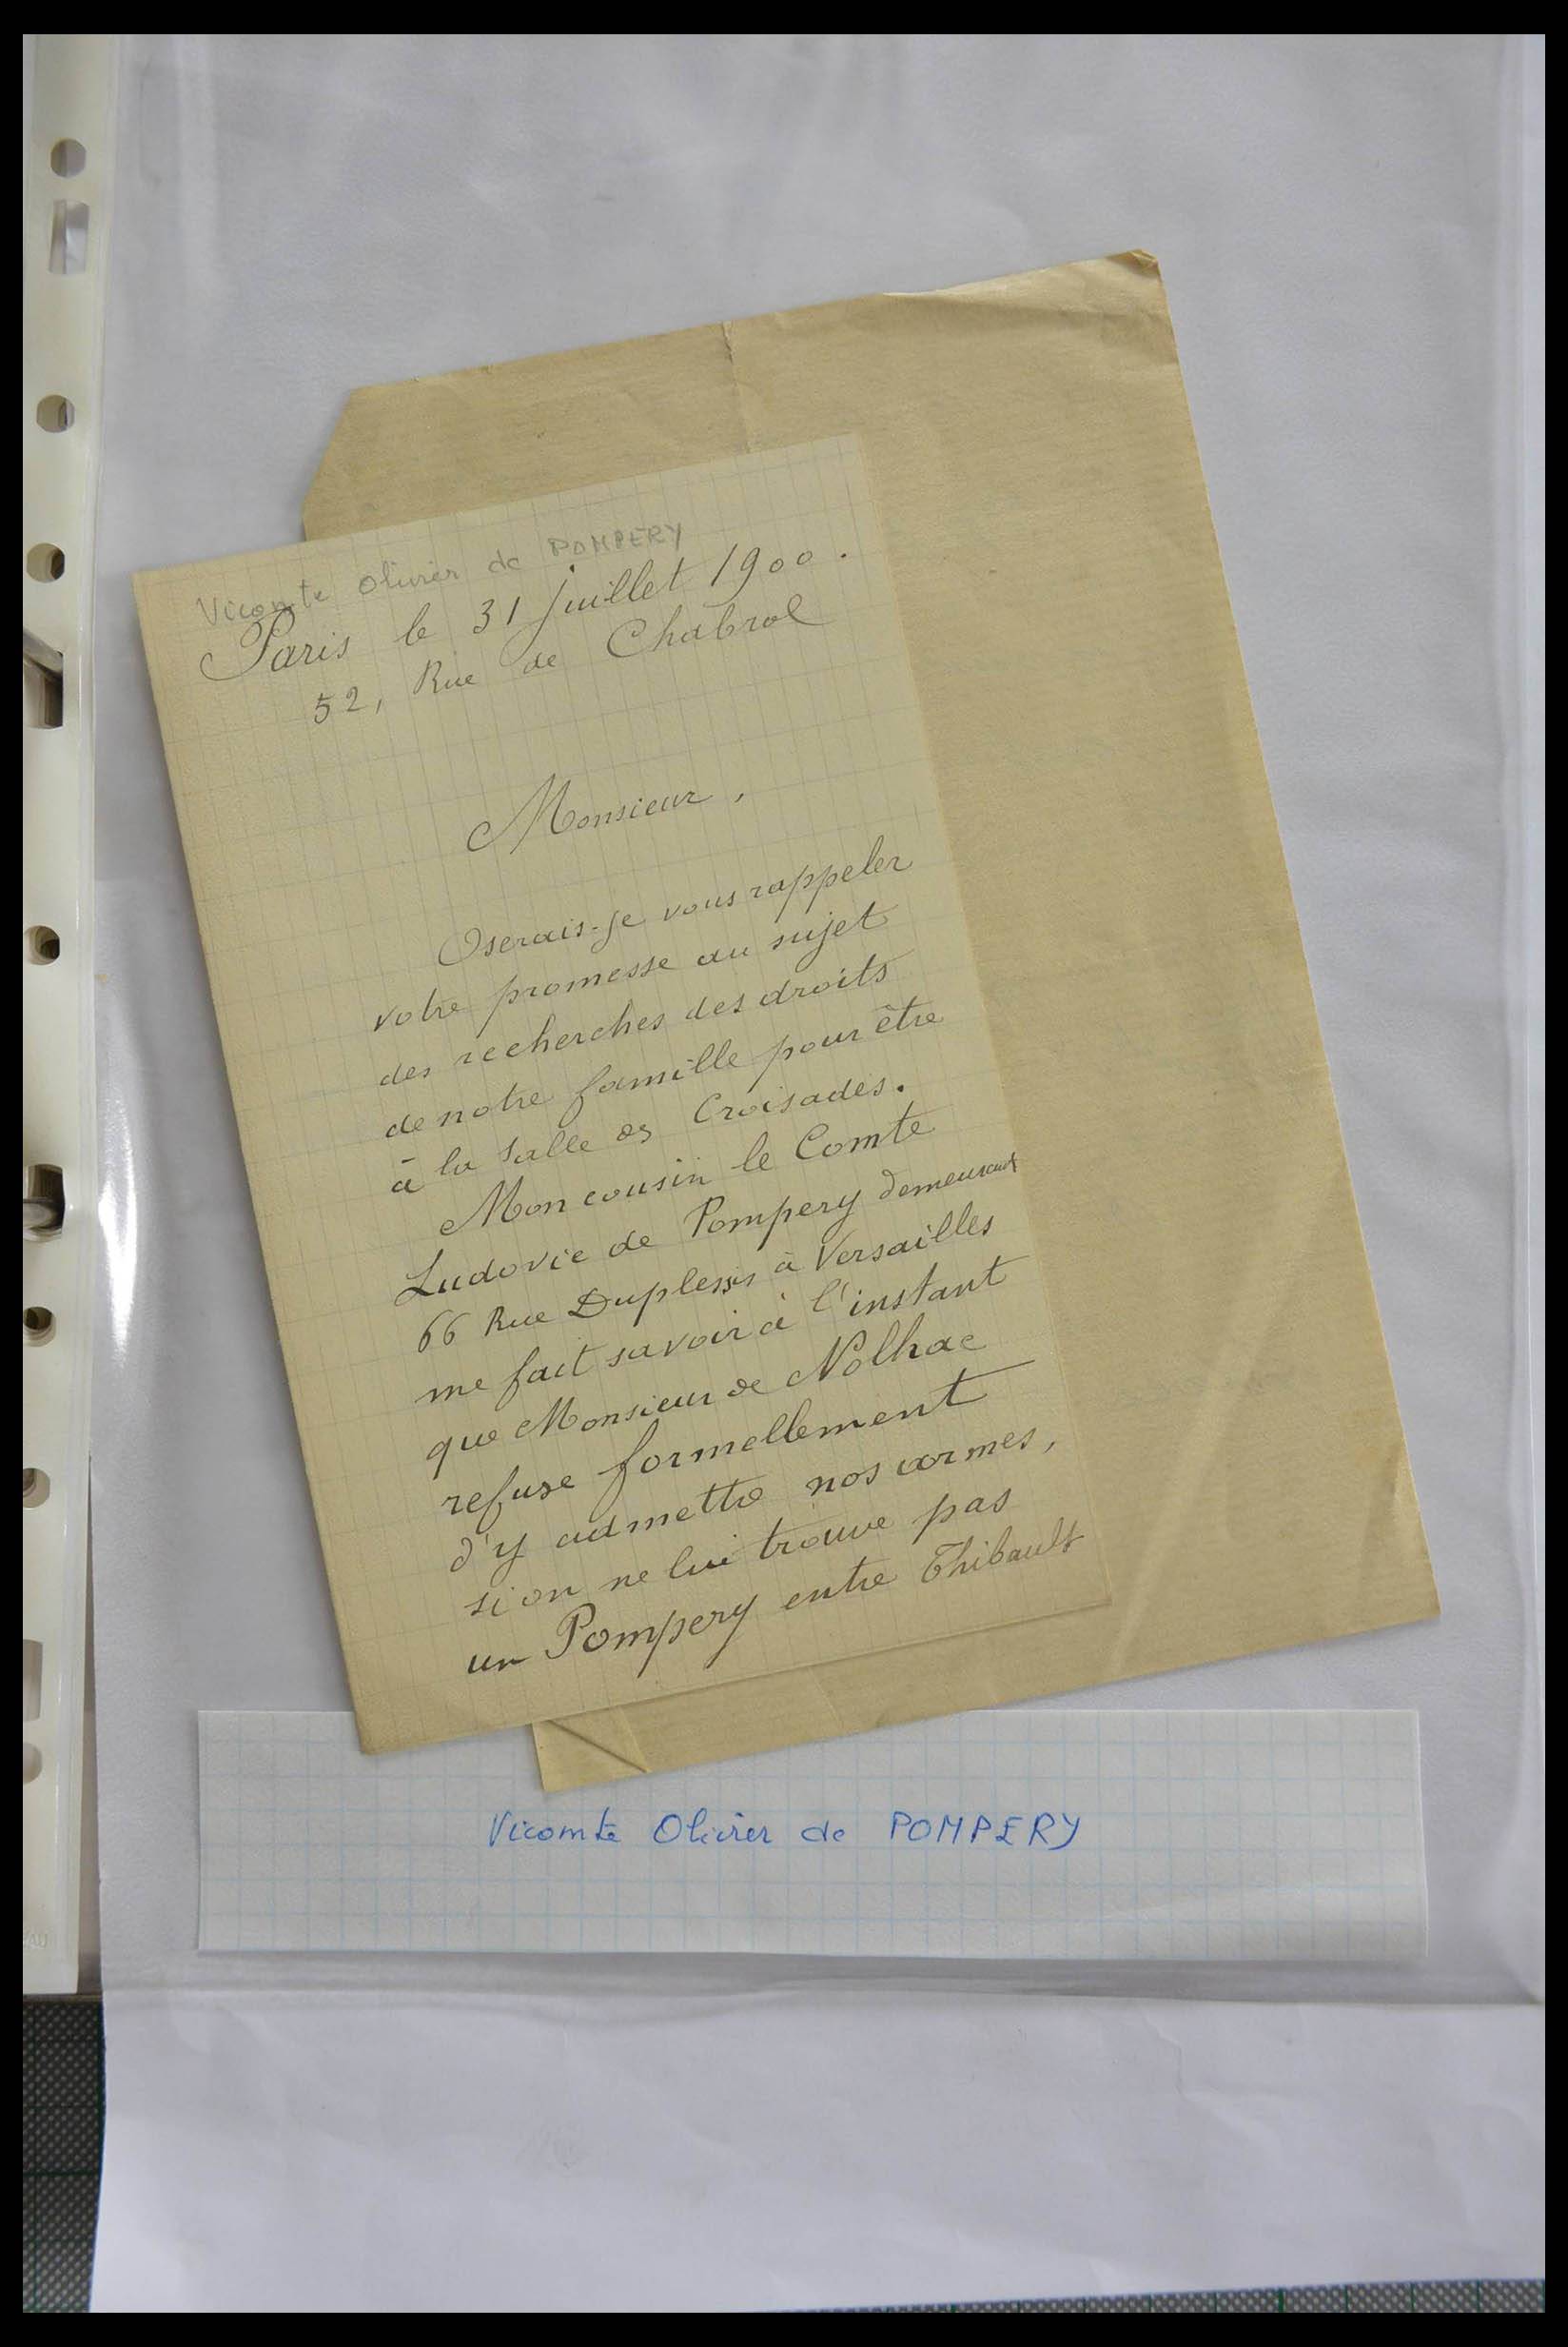 Vicomte Olivier de POMPERY
Paris le 31 juillet 1900.
52, Rue de Chabrol
Monsieur,
Oserais-je vous rappeler
votre promesse au sujet
des recherches des droits
de notre famille pour être
à la Salle des Croisades.
Mon cousin le Comte
Ludovic de Pompery demeurant
66 Rue Duplessis à Versailles
me fait savoir à l'instant
que Monsieur de Nolhac
refuse formellement
d'y admettre nos armes,
si on ne lui trouve pas
un Pompery entre Thibault
Vicomte Olivier de POMPERY